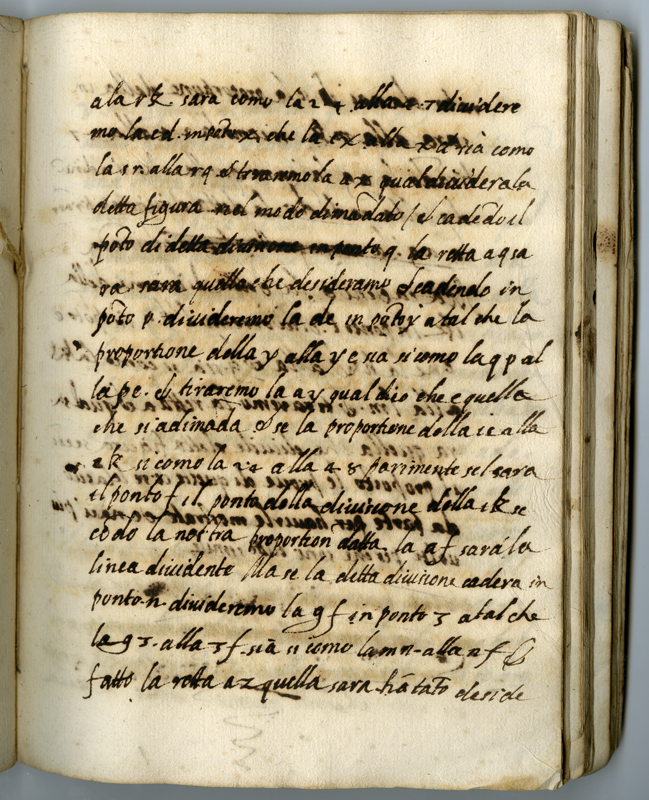 ala r k sara como la 2 4 alla e 7 divideremo
mo la c d. in poto x, che la c x alla x d sia como
la s r. alla r q & tiraremo la a x qual dividera la
detta figura nel modo dimādato / & cadēdo il
pōto di detta divisione in punto q. la retta a q sa
ra. sara quella che desideramo & cadendo in
pōto p. divideremo la de in pōto y a tal che la
proportione della y alla y e sia si como la q p al
la p e. & tiraremo la a y qual dico che e quella
che si adimāda & se la proportione della i e alla
e k si como la 24 alla 4 8 parimente sel sara
il ponto f il ponto della divisione della i k se
cōdo la nostra proportion datta. la a f sará la
linea dividente Ma se la detta divisione cadera in
ponto n. divideremo la g f in ponto z a tal che
la g z. alla z f. siā si como la m n. alla n f &
fatto la retta a z quella sara tātō deside